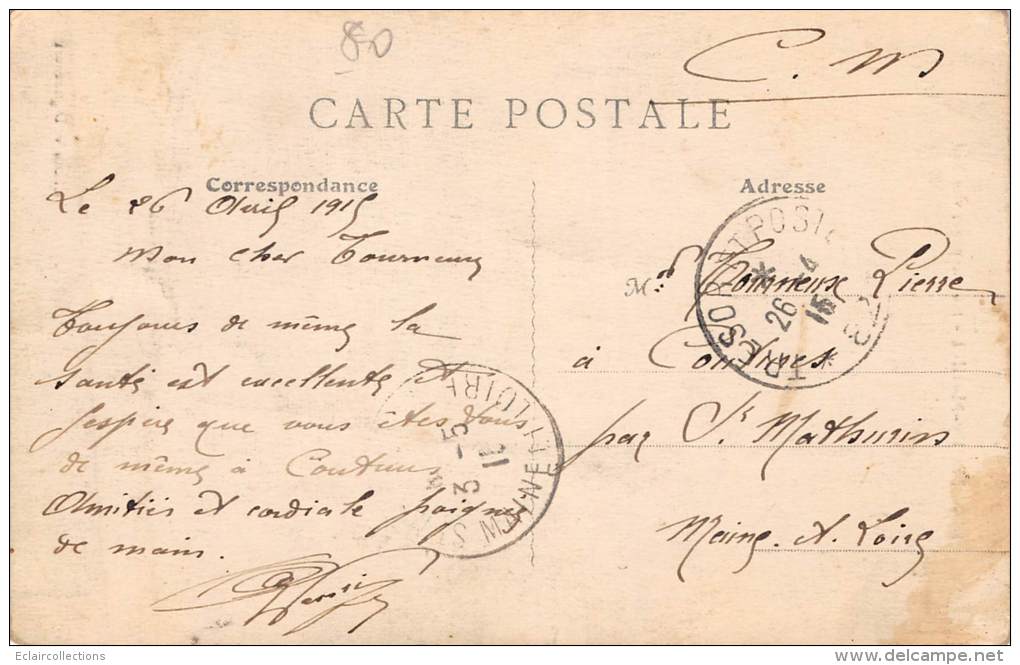 80
C. M
CARTE POSTALE
Correspondance
Adresse
Le 26 Avril 1915
Mon cher Tourneux
Toujours de même la
santé est excellente et
j'espère que vous êtes tous
de même à Coutures
Amitiés et cordiale poignée
de main.
Mr Tourneux Pierre
à Coutures
par St Mathurin
Maine-et-Loire
TRESOR ET POSTES
26 4
15
3 - 5
15
MAINE-ET-LOIRE
Eclaircollections
www.delcampe.net